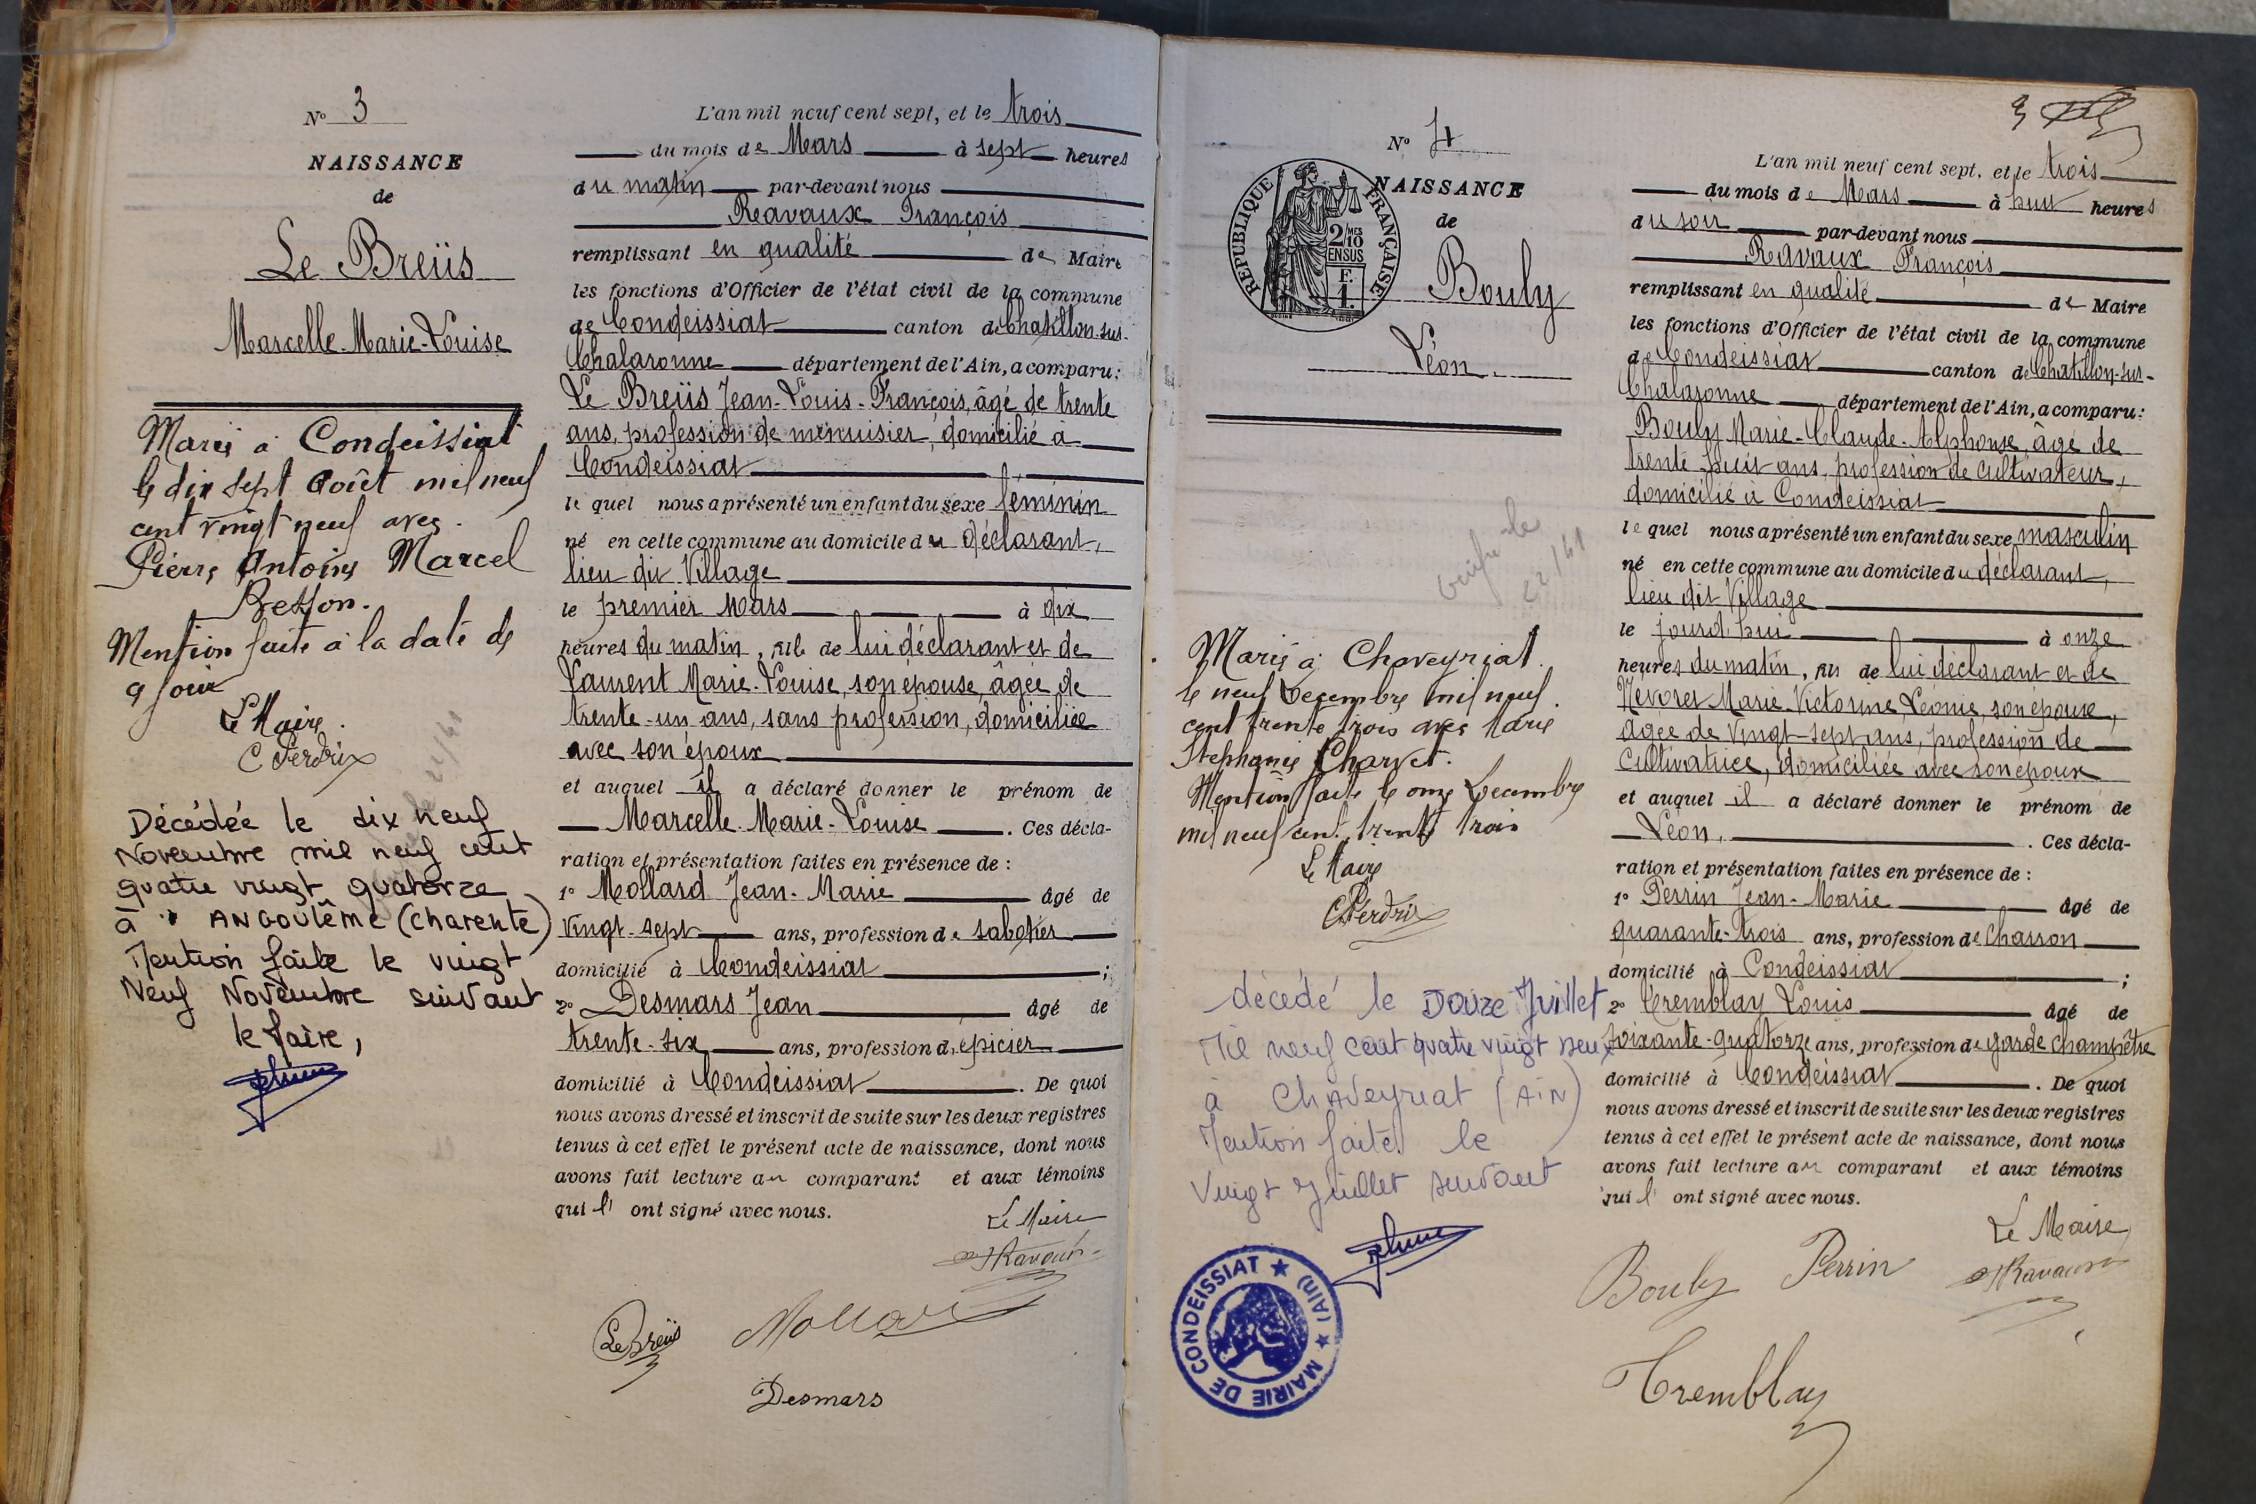 N° 3
NAISSANCE
de
Le Breüs
Marcelle-Marie-Louise
Marié à Condeissiat
le dix sept Août mil neuf
cent vingt neuf avec
Pierre Antoine Marcel
Mention faite à la date de
Le Maire
C Perdrix
Décédée le dix neuf
Novembre mil neuf cent
quatre vingt quatorze
à ANGOULÊME (Charente)
Mention faite le vingt
Neuf Novembre suivant
le Maire,
L'an mil neuf cent sept, et le trois
du mois de Mars à sept heures
du matin par-devant nous
Ravaux François
remplissant en qualité de Maire
les fonctions d'Officier de l'état civil de la commune
de Condeissiat canton de Chatillon-sur-
Chalaronne département de l'Ain, a comparu:
Le Breüs Jean-Louis-François, âgé de trente
ans, profession de menuisier, domicilié à
Condeissiat
le quel nous a présenté un enfant du sexe féminin
né en cette commune au domicile du déclarant,
lieu dit Village
le premier Mars à dix
heures du matin, fille de lui déclarant et de
Laurent Marie-Louise, son épouse, âgée de
trente-un ans, sans profession, domiciliée
avec son époux
et auquel il a déclaré donner le prénom de
Marcelle-Marie-Louise. Ces décla-
ration et présentation faites en présence de :
1° Mollard Jean-Marie âgé de
vingt-sept ans, profession de sabotier
domicilié à Condeissiat ;
2° Desmars Jean âgé de
trente-six ans, profession d'épicier
domicilié à Condeissiat. De quoi
nous avons dressé et inscrit de suite sur les deux registres
tenus à cet effet le présent acte de naissance, dont nous
avons fait lecture au comparant et aux témoins
qui l' ont signé avec nous.
Le Maire
Ravaux
Le Breüs
Mollard
Desmars
N° 4
NAISSANCE
de
REPUBLIQUE FRANÇAISE
2/10 MES
EN SUS
F.
1.
Bouly
Léon
Marié à Chaveyriat
le neuf Décembre mil neuf
cent trente trois avec Marie
Stéphanie Charvet.
Mention faite le onze Décembre
mil neuf cent trente trois
Le Maire
C Perdrix
décédé le Douze Juillet
Mil neuf cent quatre vingt deux
à Chaveyriat (AiN)
Mention faite le
Vingt Juillet suivant
MAIRIE DE CONDEISSIAT ★ (AIN) ★
L'an mil neuf cent sept, et le trois
du mois de Mars à huit heures
du soir par-devant nous
Ravaux François
remplissant en qualité de Maire
les fonctions d'Officier de l'état civil de la commune
de Condeissiat canton de Chatillon-sur-
Chalaronne département de l'Ain, a comparu:
Bouly Marie-Claude-Alphonse, âgé de
trente-huit ans, profession de cultivateur,
domicilié à Condeissiat
le quel nous a présenté un enfant du sexe masculin
né en cette commune au domicile du déclarant,
lieu dit Village
le jourd'hui à onze
heures du matin, fils de lui déclarant et de
Névoret Marie-Victorine, Léonie, son épouse,
âgée de vingt-sept ans, profession de
cultivatrice, domiciliée avec son époux
et auquel il a déclaré donner le prénom de
Léon. Ces décla-
ration et présentation faites en présence de :
1° Perrin Jean-Marie âgé de
quarante-trois ans, profession de charron
domicilié à Condeissiat ;
2° Tremblay Louis âgé de
soixante-quatorze ans, profession de garde champêtre
domicilié à Condeissiat. De quoi
nous avons dressé et inscrit de suite sur les deux registres
tenus à cet effet le présent acte de naissance, dont nous
avons fait lecture au comparant et aux témoins
qui l' ont signé avec nous.
Le Maire
Bouly Perrin Ravaux
Tremblay